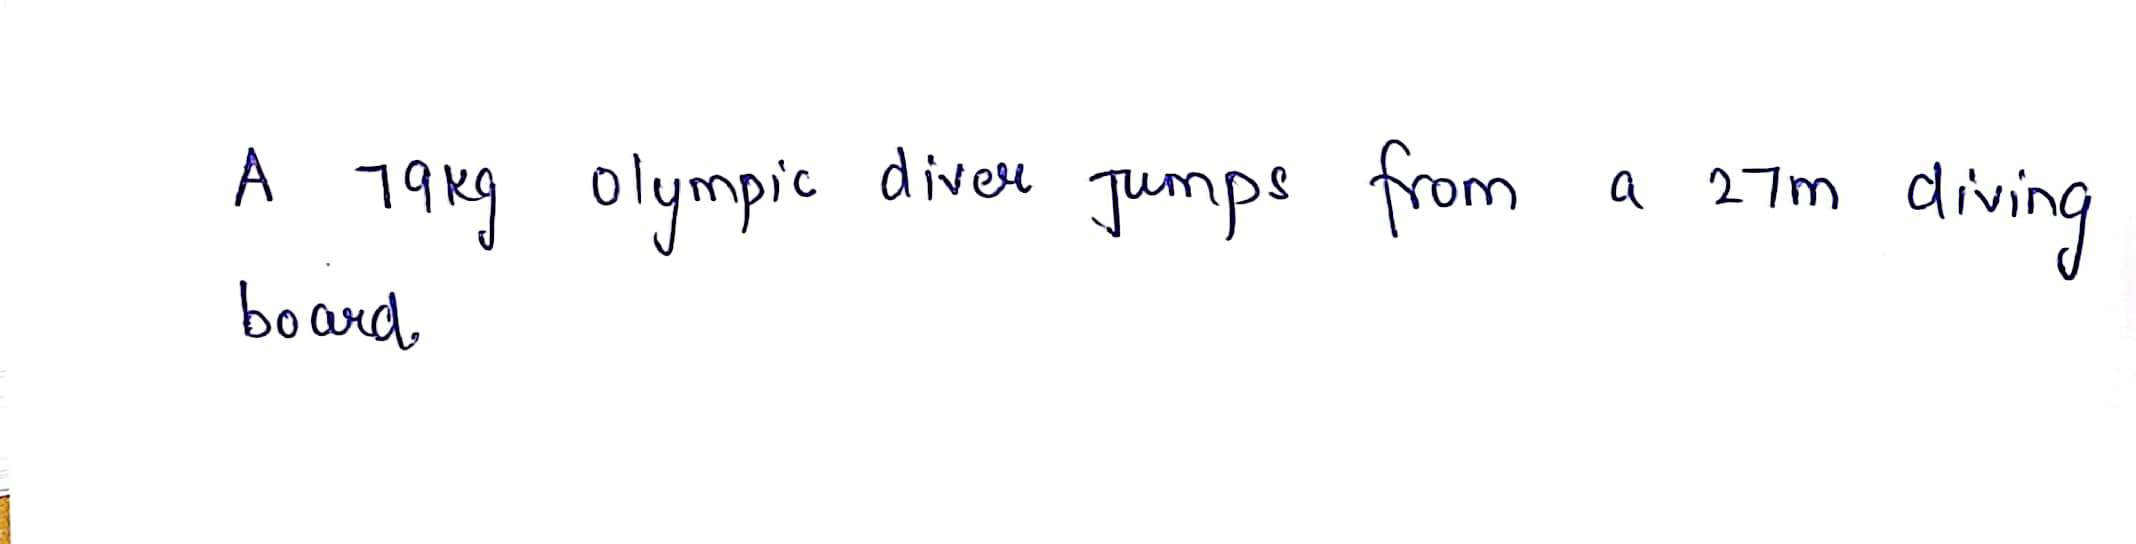 A 79kg olympic diver jumps from a 27m diving
board.